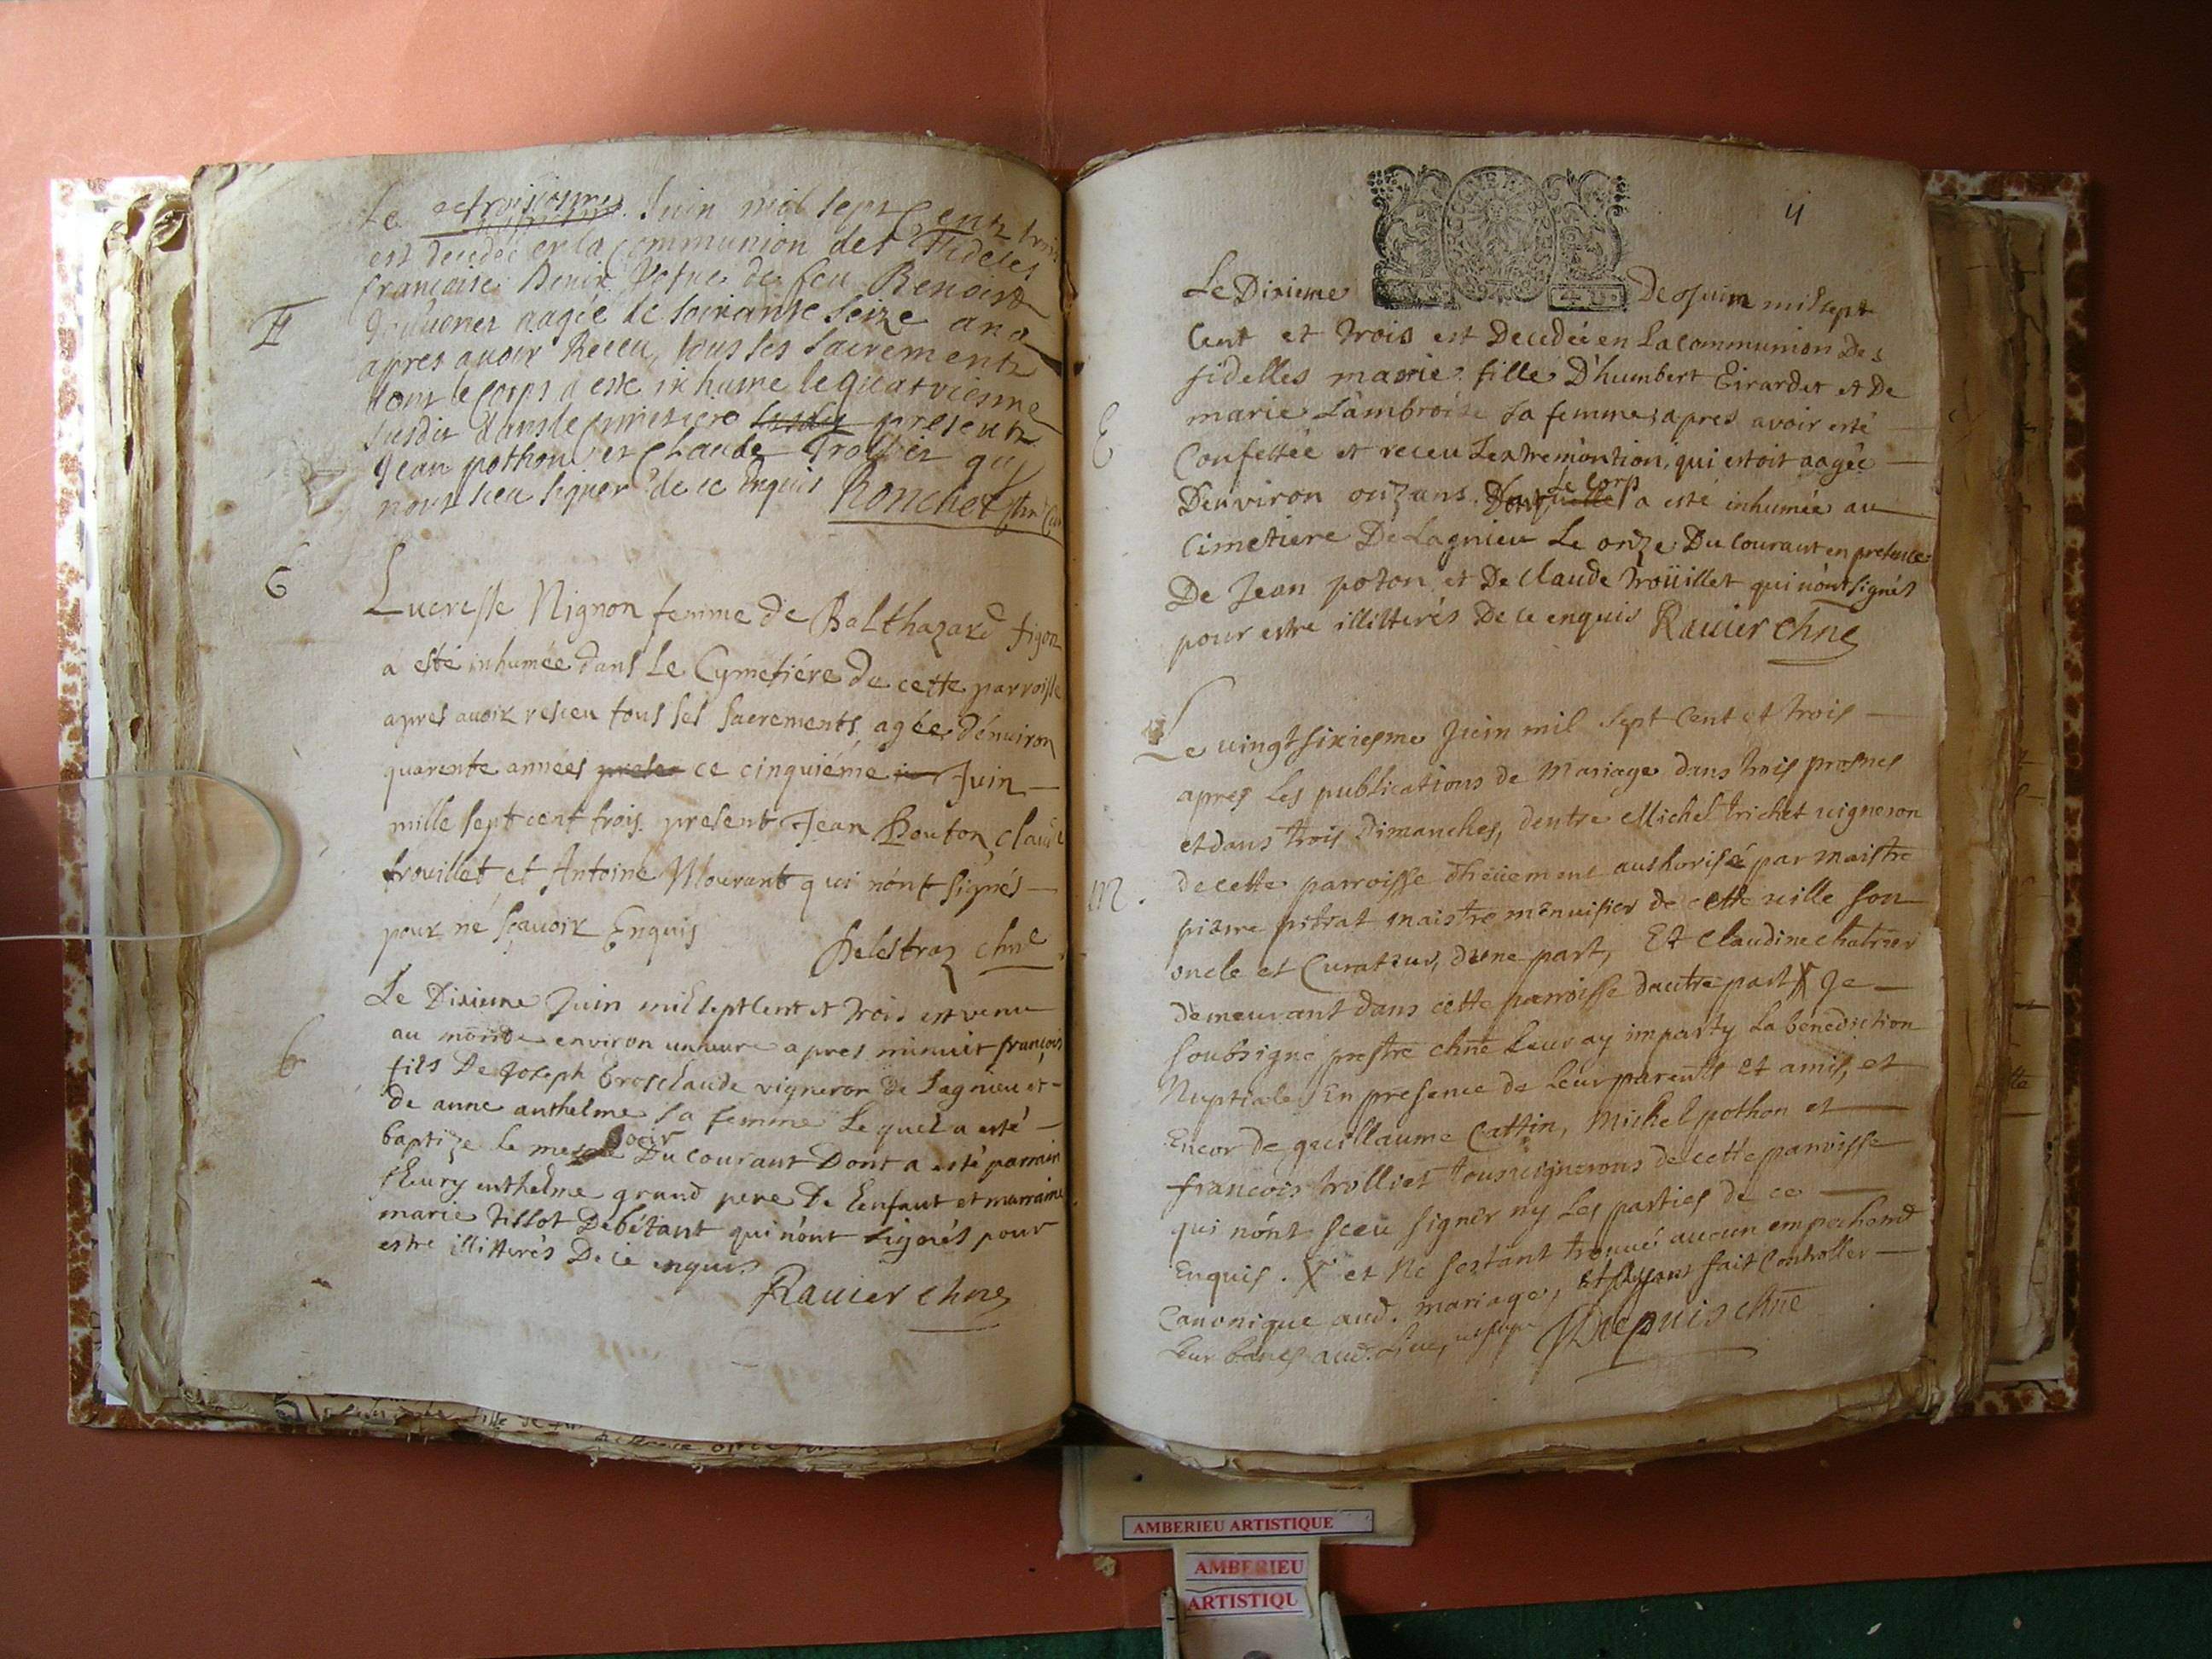 Le troisiesme Juin mil sept Cents trois
est decedée en la Communion des Fideles
francoise Vefue de feu Benoist
aagée de soixante seize ans
apres auoir Receu tous les sacrements
dont le Corps a esté inhume le quatriesme
susdit dans le Cymetiere presents
Jean pothon et Claude Trollier qui
nont sceu signer de ce Enquis Ronchet
E
Lucresse Nignon femme de Balthazard figon
a esté inhumée dans Le Cymetiére de cette parroisse
apres auoir resceu tous ses sacrements agée dénuiron
quarente années ce cinquiéme Juin
mille sept cent trois present Jean Bouton claude
trouillet et Antoine Mourant qui nónt signés
pour né sçauoir Enquis
Delestraz chne
Le Dixieme Juin mil sept Cent et trois est venu
au monde environ un heure apres minuit françois
fils De Joseph Grosclaude vigneron De Lagnieu et
de anne anthelme sa femme Lequel a esté
baptize le mesme jour Du courant Dont a esté parrain
fleury enthelme grand pere De Lenfant et marraine
marie tillot Debétant qui nónt signés pour
estre illitterés De ce enquis
Rauier chne
4
Le Dixieme De Juin mil sept
Cent et trois est Decedée en La communion Des
fidelles marie fille D'humbert Girardet et De
marie Lambroise sa femme apres avoir esté
Confessée et receu Lextremontion, qui estoit aagée
Denviron onz ans. Dont Le corps a esté inhumée au
E
Cimetiere De Lagnieu Le onze Du courant en presence
De Jean poton et De claude troüillet qui nónt signés
pour estre illitterés De ce enquis Rauier chne
Le uingt sixiesme Juin mil sept Cent et trois
apres Les publications de Mariage dans trois prosnes
et dans trois Dimanches, dentre Michel trichet uigneron
de cette parroisse dheüement authorisé par maistre
M.
pierre pitrat maistre menuisier de cette uille son
oncle et Curateur, dune part, Et Claudine chatrier
demeurant dans cette parroisse dautre part X Je
soubsigné prestre chne Leur ay imparty La benediction
Nuptiale En presence de Leur parents et amis, et
Encor de guillaume Cattin, Michel pothon et
francois trolliet tous uignerons de cette parroisse
qui nónt sceu signer ny Les parties de ce
Enquis. X et Ne sestant trouué aucun empechemt
Canonique aud. mariage, et ayant fait Controller
Leur bancs aud. Lieu, Depuis chne
AMBERIEU ARTISTIQUE
AMBERIEU
ARTISTIQU